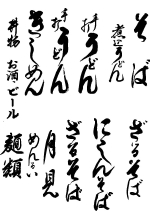 そば
煮込うどん
手打うどん
手打うどん
きしめん
お酒・ビール
丼物
ざるそば
にしんそば
ざるそば
月見
めんるい
麺類